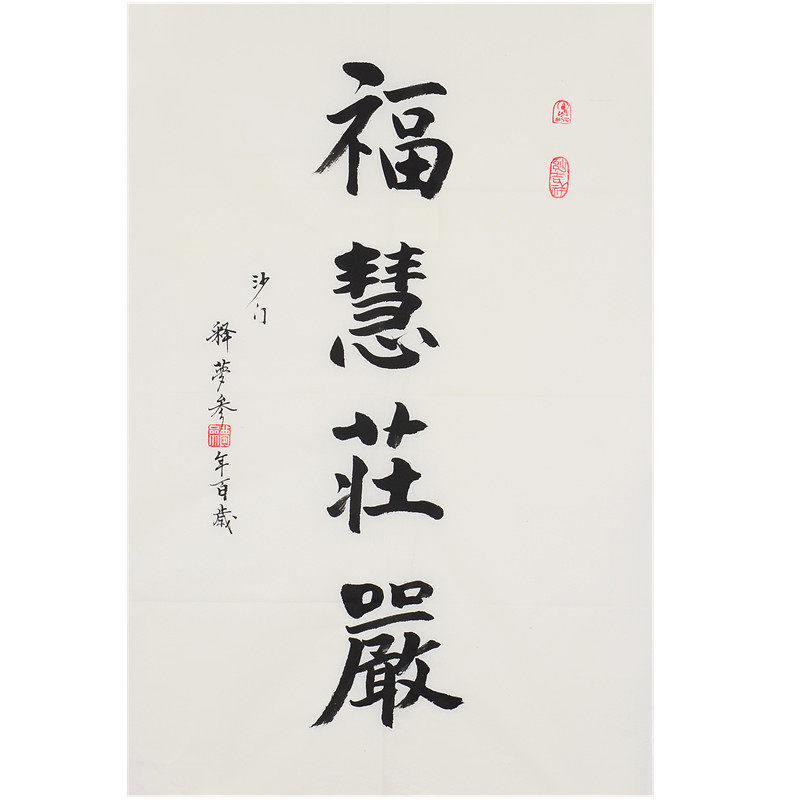 福慧莊嚴
沙门
释夢參
年百歲